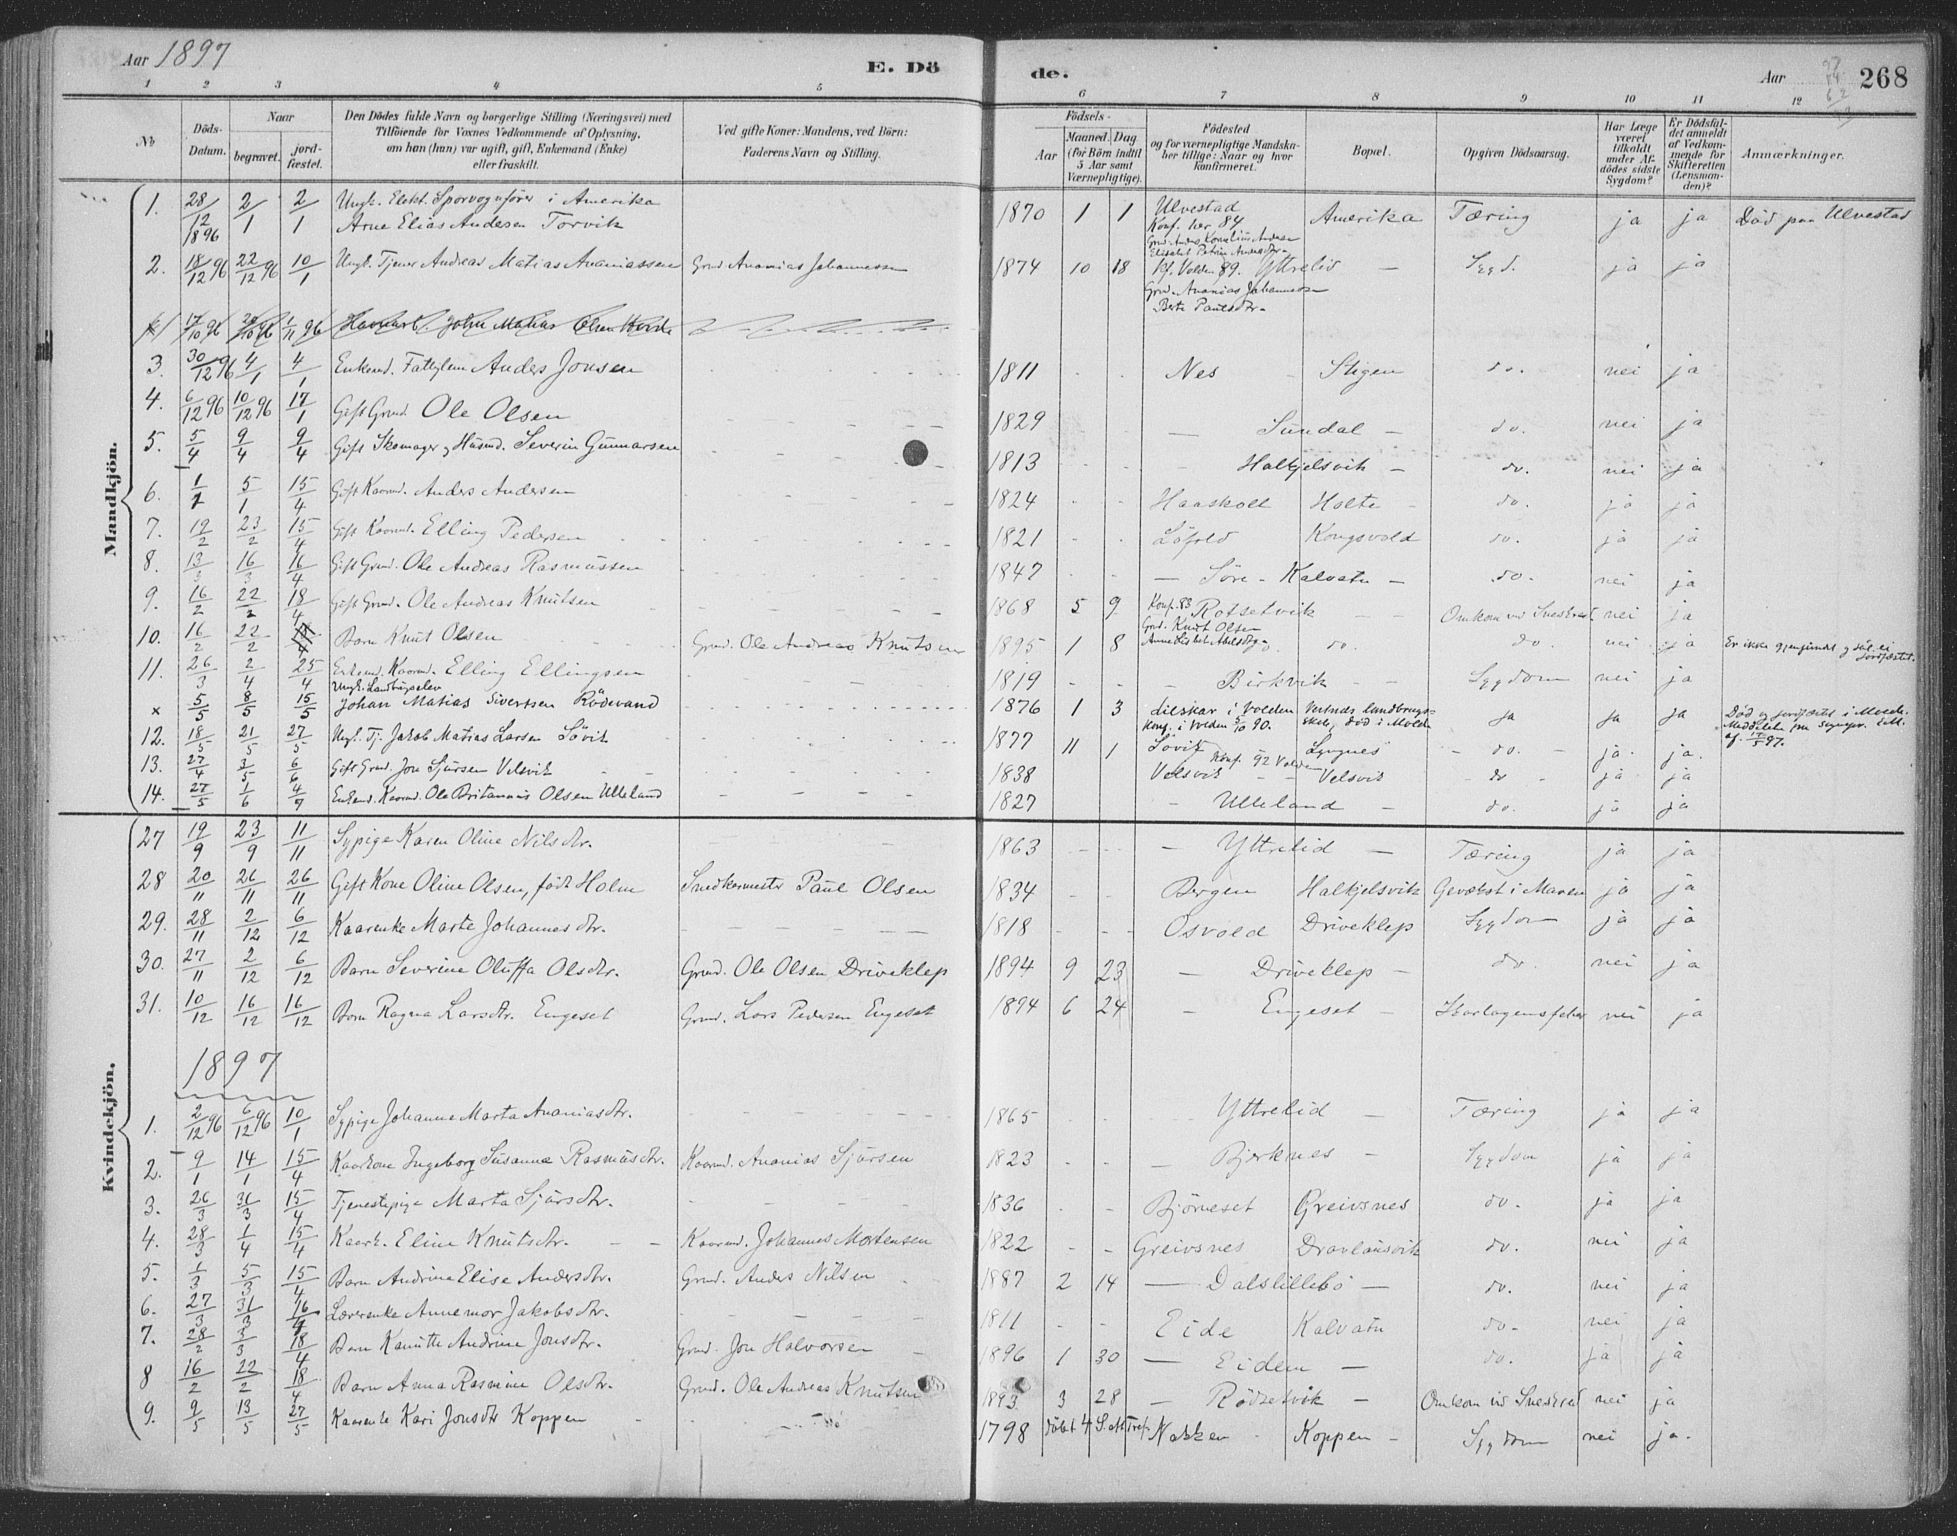 Aar 1897 E. Dö de. Aar 268
1 2 3 4 5 6 7 8 9 10 11 12
No
Döds-Datum.
Naar
begravet.
jord-fæstet.
Den Dödes fulde Navn og borgerlige Stilling (Næringsvei) med
Tilföiende for Voxnes Vedkommende af Oplysning,
om han (hun) var ugift, gift, Enkemand (Enke)
eller fraskilt.
Ved gifte Koner: Mandens, ved Börn:
Faderens Navn og Stilling.
Födsels-
Aar
Maaned. Dag
(for Börn indtil
5 Aar samt
Værnepligtige).
Födested
og for værnepligtige Mandska-
ber tillige: Naar og hvor
konfirmeret.
Bopæl.
Opgiven Dödsaarsag.
Har Læge
været
tilkaldt
under Af-
dödes sidste
Sygdom?
Er Dödsfal-
det anmeldt
af Vedkom-
mende for
Skifteretten
(Lensman-
den)?
Anmærkninger.
Mandkjön.
1. 28/12 1896 2/1 2/1 Ungk. Elekt. Sporvognfører i Amerika
Arne Elias Andersen Torvik 1870 1 1 Ulvestad Amerika Tæring ja ja Död paa Ulvestad
Konf. her 84
Grd. Anders Kornelius Andersen
Elisabet Petrine Andersdtr.
2. 18/12 96 22/12 96 10/1 Ungk. Tjener Andreas Matias Ananiassen Grmd Ananias Johannessen 1874 10 18 Kf. Volden 89. Yttrelid — Sygd. ja ja
Grd. Ananias Johannessen
Berte Paulsdtr.
17/10 96 1/11 96 John Matias Olsen
3. 30/12 96 4/1 4/1 Enkemd. Fattiglem Anders Jonsen 1811 Nes Stigen do. nei ja
4. 6/12 96 10/12 96 17/1 Gift Grmd. Ole Olsen 1829 — Sundal — do. nei ja
5. 5/4 9/4 9/4 Gift Skomager og Husmd. Severin Gunnarsen 1813 - Halkjelsvik — do. nei ja
6. 1/1 5/1 15/4 Gift Kaarmd. Anders Andersen 1824 Haaskoll Holte do. ja ja
7. 19/2 23/2 15/4 Gift Kaarmd. Elling Pedersen 1821 Löfold Kongsvold do. ja ja
8. 13/3 16/3 16/4 Gift Grmd. Ole Andreas Rasmussen 1847 — Söre-Kalvatn — do. nei ja
9. 16/2 22/2 18/4 Gift Grmd. Ole Andreas Knutsen 1868 5 9 Konf. 83 Rotsetvik Omkom ved Sneskred nei ja
Grd. Knut Olsen
10. 16/2 22/2 Barn Knut Olsen Grmd. Ole Andreas Knutsen 1895 1 8 do. do nei ja Er ikke gjenfundet og saal. ei
jordfæstet.
11. 26/3 2/4 25/4 Enkemd. Kaarmd. Elling Ellingsen 1819 - Birkvik Sygdom nei ja
Ungk. Landbrugselev
x 5/5 8/5 15/5 Johan Matias Sivertsen Rödevand 1876 1 3 dilskar i Volden Vestnes landbrugs- ja ja ja Död og jordfæstet i Molde.
Konf. i Volden 5/10 90. skole, död i Molde
12. 18/5 21/5 27/5 Ungk. Tj. Jakob Matias Larsen Lövik 1877 11 1 Lövik Lyngnes - do. - ja. ja.
Konf. 92 Volden
13. 27/4 3/5 6/6 Gift Grmd. Jon Sjursen Velsvik 1838 Velsvik - - Velsvik - do - ja ja
14. 27/5 1/6 4/7 Enkemd. Kaarmd. Ole Britannus Olsen Ulleland 1827 - Ulleland - do. ja ja
Kvindekjön.
27 19/9 23/9 11/11 Sypige Karen Oline Nilsdtr. 1863 - Yttrelid — Tæring ja ja
28 20/11 26/11 26/11 Gift Kone Oline Olsen, född Holm Snedkermester Paul Olsen 1834 Bergen Halkjelsvik Gevækst i Maven ja ja
29. 28/11 2/12 6/12 Kaarenke Marte Johannesdtr. 1818 Osvold Driveklep Sygdom ja ja
30. 27/11 2/12 6/12 Barn Severine Oluffa Olsdtr. Grmd. Ole Olsen Driveklep 1894 9 23 - Driveklep - do. nei ja
31. 10/12 16/12 16/12 Barn Ragna Larsdtr. Engeset Grmd. Lars Pedersen Engeset 1894 6 24 - Engeset - Skarlagensfeber nei ja
1897
1. 2/12 96 6/12 96 10/1 Sypige Johanne Marta Ananiasdtr. 1865 Yttrelid — Tæring ja ja
2. 9/1 14/1 15/4 Kaarkone Ingeborg Susanne Rasmusdtr. Kaarmd. Ananias Sjursen 1823 - Bjerknes - Sygdom ja ja
3. 26/3 31/3 15/4 Tjenestepige Marta Sjursdtr. 1836 Björneset Greivsnes do. ja ja
4. 28/3 1/4 15/4 Kaark. Eline Knutsdtr. Kaarmd. Johannes Mortensen 1822 Greivsnes Dravlausvik do. nei ja
5. 1/3 5/3 15/4 Barn Andrine Elise Andersdtr. Grmd. Anders Nilsen 1887 2 14 — Dalslillebö — do. nei ja
6. 27/3 31/3 16/4 Lærerenke Annemor Jakobsdtr. 1811 Eide Kalvatn do. nei ja
7. 28/2 3/3 18/4 Barn Kanutte Andrine Jonsdtr. Grmd. Jon Halvorsen 1896 1 30 — Eidem — do. ja ja
8 16/2 22/2 18/4 Barn Anna Rasmine Olsdtr. Grmd. Ole Andreas Knutsen 1893 3 28 — Rödsetvik — Omkom ved Sneskred nei ja
9. 9/5 13/5 27/5 Kaarenke Kari Jonsdtr Koppen 1798 döbt 4 S. e. Tref. Nakken Koppen - Sygdom nei ja.